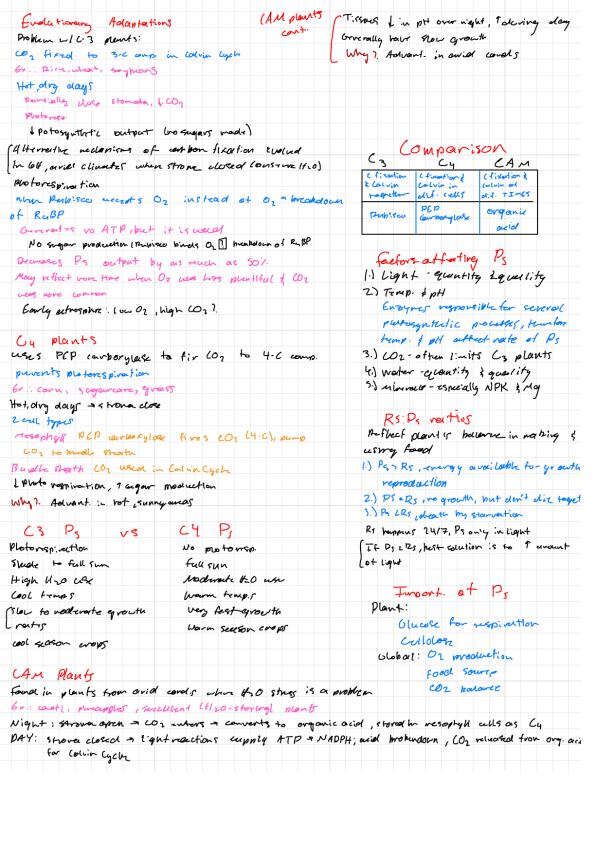 Evolutionary Adaptations
Problem w/ C-3 plants:
CO2 fixed to 3-C comp in Calvin Cycle
Ex.: Rice, wheat, soybeans
Hot, dry days
Partially close stomata, ↓ CO2
Photoresp.
↓ Potosynthetic output (no sugars made)
Alternative mechanisms of carbon fixation evolved
in hot, arid climates when stroma closed (conserve H2O)
Photorespiration
when Rubisco accepts O2 instead of O2 → breakdown
of RuBP
Generates no ATP, but it is used
No sugar production (Rubisco binds O2) breakdown of RuBP
Decreases Ps output by as much as 50%
May reflect more time when O2 was less plentiful & CO2
was more common
Early atmosphere: low O2, high CO2?
C4 plants
uses PEP carboxylase to fix CO2 to 4-C comp.
prevents photorespiration
Ex.: corn, sugarcane, grass
Hot, dry days → stroma close
2 cell types
Mesophyll PEP carboxylase fixes CO2 (4-C), pump
CO2 to bundle sheath
Bundle sheath CO2 used in Calvin Cycle
↓ Photo respiration, ↑ sugar production
Why? Advant. in hot, sunny areas
C3 Ps vs C4 Ps
Photorespiration No photoresp.
Shade to full sun full sun
High H2O use Moderate H2O use
Cool temps warm temps
Slow to moderate growth very fast growth
rates
cool season crops warm season crops
CAM Plants
found in plants from arid conds when H2O stress is a problem
Ex.: cacti, pineapples, succulent (H2O-storing) plants
Night: stroma open → CO2 enters → converts to organic acid, stored in mesophyll cells as C4
DAY: stroma closed → light reactions supply ATP + NADPH; acid brokendown, CO2 released from org. acid
for Calvin Cycle
CAM plants
cont.
Tissues ↓ in pH over night, ↑ during day
Generally have slow growth
Why? Advant. in arid conds
Comparison
C3 C4 CAM
C fixation & Calvin together
C fixation & Calvin in diff. cells
C fixation & Calvin at diff. TIMES
Rubisco
PEP carboxylase
organic acid
Factors affecting Ps
1.) Light - quantity & quality
2.) Temp. & pH
Enzymes responsible for several
photosynthetic processes, therefore
temp. & pH affect rate of Ps
3.) CO2 - often limits C3 plants
4.) Water - quantity & quality
5.) minerals - especially NPK & Mg
Rs:Ps ratios
Reflect plants balance in making &
using food
1.) Ps > Rs, energy available for growth
reproduction
2.) Ps = Rs, no growth, but don't die
3.) Ps < Rs, death by starvation
Rs happens 24/7, Ps only in light
If Ps < Rs, best solution is to ↑ amount
of light
Import. of Ps
Plant:
Glucose for respiration
Cellulose
Global: O2 production
food source
CO2 balance